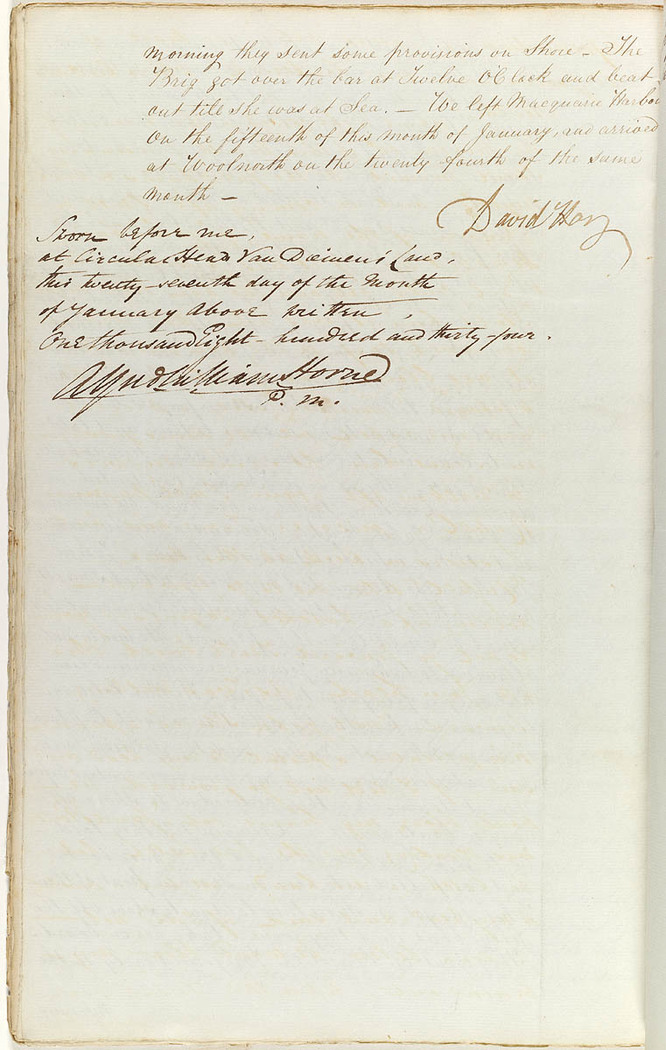 morning they sent some provisions on Shore – The
Brig got over the bar at Twelve O'Clock and beat
out till she was at Sea. – We left Macquarie Harbo
On the fifteenth of this month of January, and arrived
at Woolnorth on the twenty fourth of the same
month –
David Hoy
Sworn before me,
at Circular Head Van Diemen's Land,
this twenty-seventh day of the Month
of January above written,
One thousand Eight – hundred and thirty-four.
Alfred William Horne
P. M.